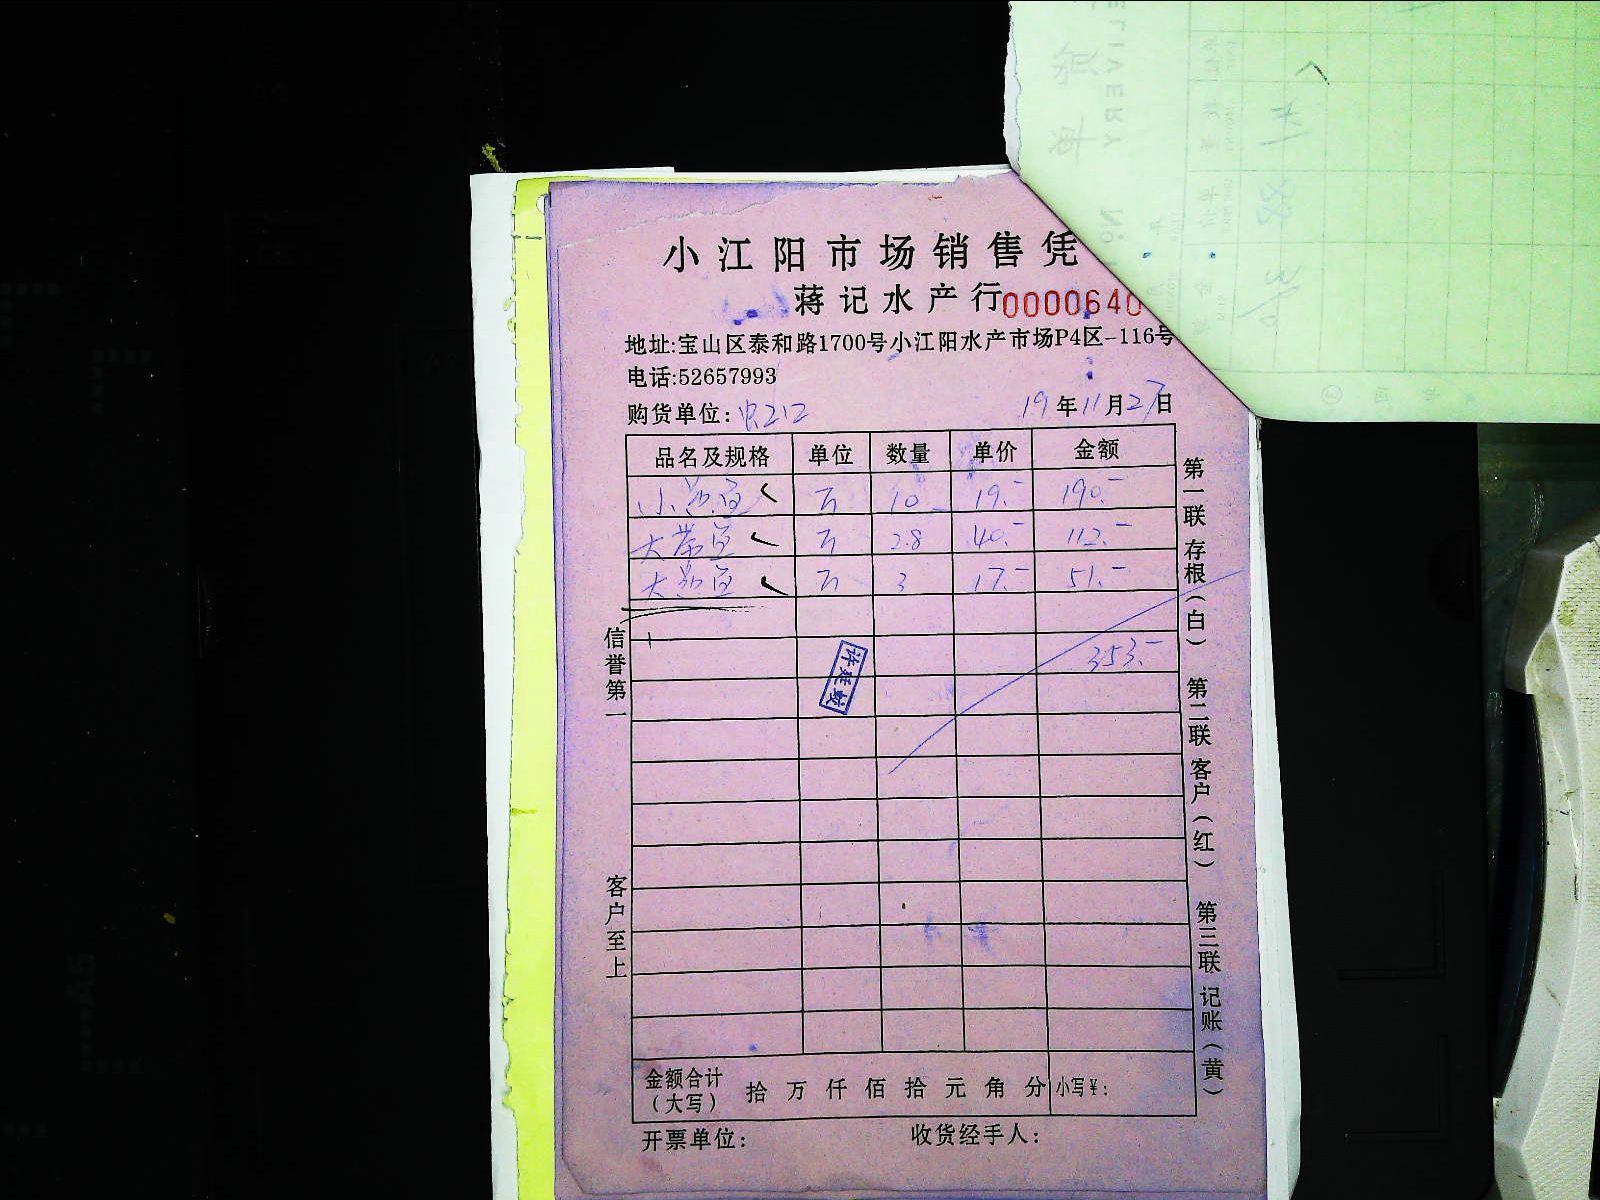 小江阳市场销售凭
蒋记水产行0000640
地址:宝山区泰和路1700号小江阳水产市场P4区-116号
电话:52657993
购货单位: 212
19年11月27日
品名及规格 单位 数量 单价 金额
小 鱼 斤 10 19.- 190.-
大 鱼 斤 2.8 40.- 112.-
大 鱼 斤 3 17.- 51.-
353.-
许廷敏
信誉第一
客户至上
第一联 存根(白)
第二联 客户(红)
第三联 记账(黄)
金额合计(大写) 拾 万 仟 佰 拾 元 角 分 小写¥:
开票单位: 收货经手人:
ELIVERY No